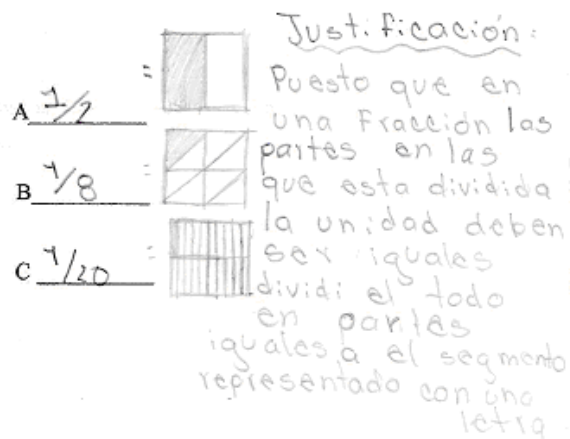 Justificación:
A 1/2 =
B 1/8 =
C 1/20 =
Puesto que en
una Fracción las
partes en las
que esta dividida
la unidad deben
ser iguales
dividi el todo
en partes
iguales, a el segmento
representado con una
letra